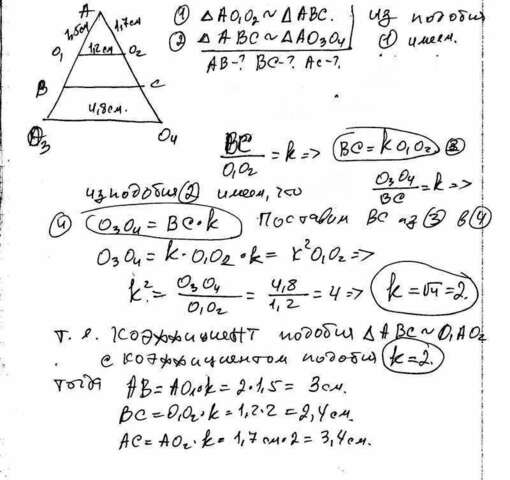 A
1,5см 1,7см
O₁ 1,2см O₂
B C
4,8см.
O₃ O₄
① △AO₁O₂ ~ △ABC. Из подобия
② △ABC ~ △AO₃O₄ ① имеем.
AB-? BC-? AC-?
BC/O₁O₂ = k => BC = k O₁O₂ ③
из подобия ② имеем, что O₃O₄/BC = k =>
④ O₃O₄ = BC·k Поставим BC из ③ в ④
O₃O₄ = k·O₁O₂·k = k²O₁O₂ =>
k² = O₃O₄/O₁O₂ = 4,8/1,2 = 4 => k = √4 = 2.
т.е. коэффициент подобия △ABC ~ O₁AO₂
с коэффициентом подобия k=2.
тогда AB = AO₁·k = 2·1,5 = 3см.
BC = O₁O₂·k = 1,2·2 = 2,4см.
AC = AO₂·k = 1,7см·2 = 3,4см.